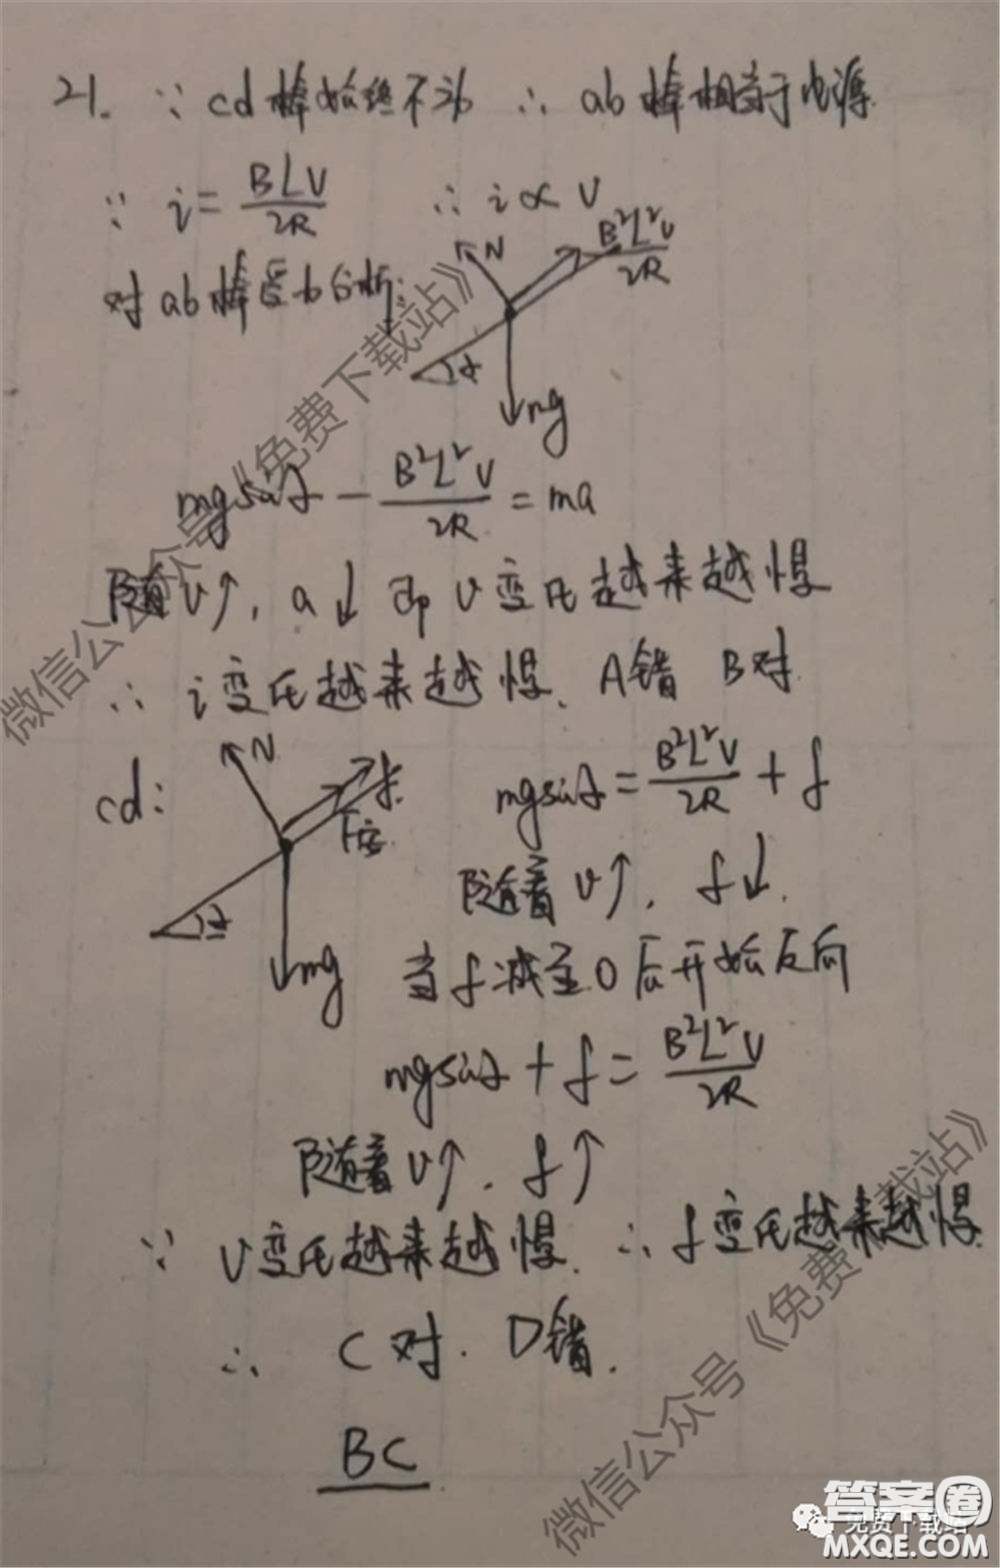 21. ∵ cd棒始终不动 ∴ ab棒相当于电源.
∵ i=BLV/2R ∴ i∝V
对ab棒受力分析:
N
B²L²V/2R
α
mg
mgsinα - B²L²V/2R = ma
随v↑, a↓ 即v变化越来越慢
∴ i变化越来越慢、A错 B对.
cd:
N
f.
F安.
α
mg
mgsinα = B²L²V/2R + f
随着v↑, f↓.
当f减至0后开始反向
mgsinα + f = B²L²V/2R
随着v↑, f↑
∵ v变化越来越慢. ∴ f变化越来越慢
∴ C对. D错.
BC
微信公众号《免费下载站》
微信公众号《免费下载站》
答案圈
免费下载站
MXQE.COM